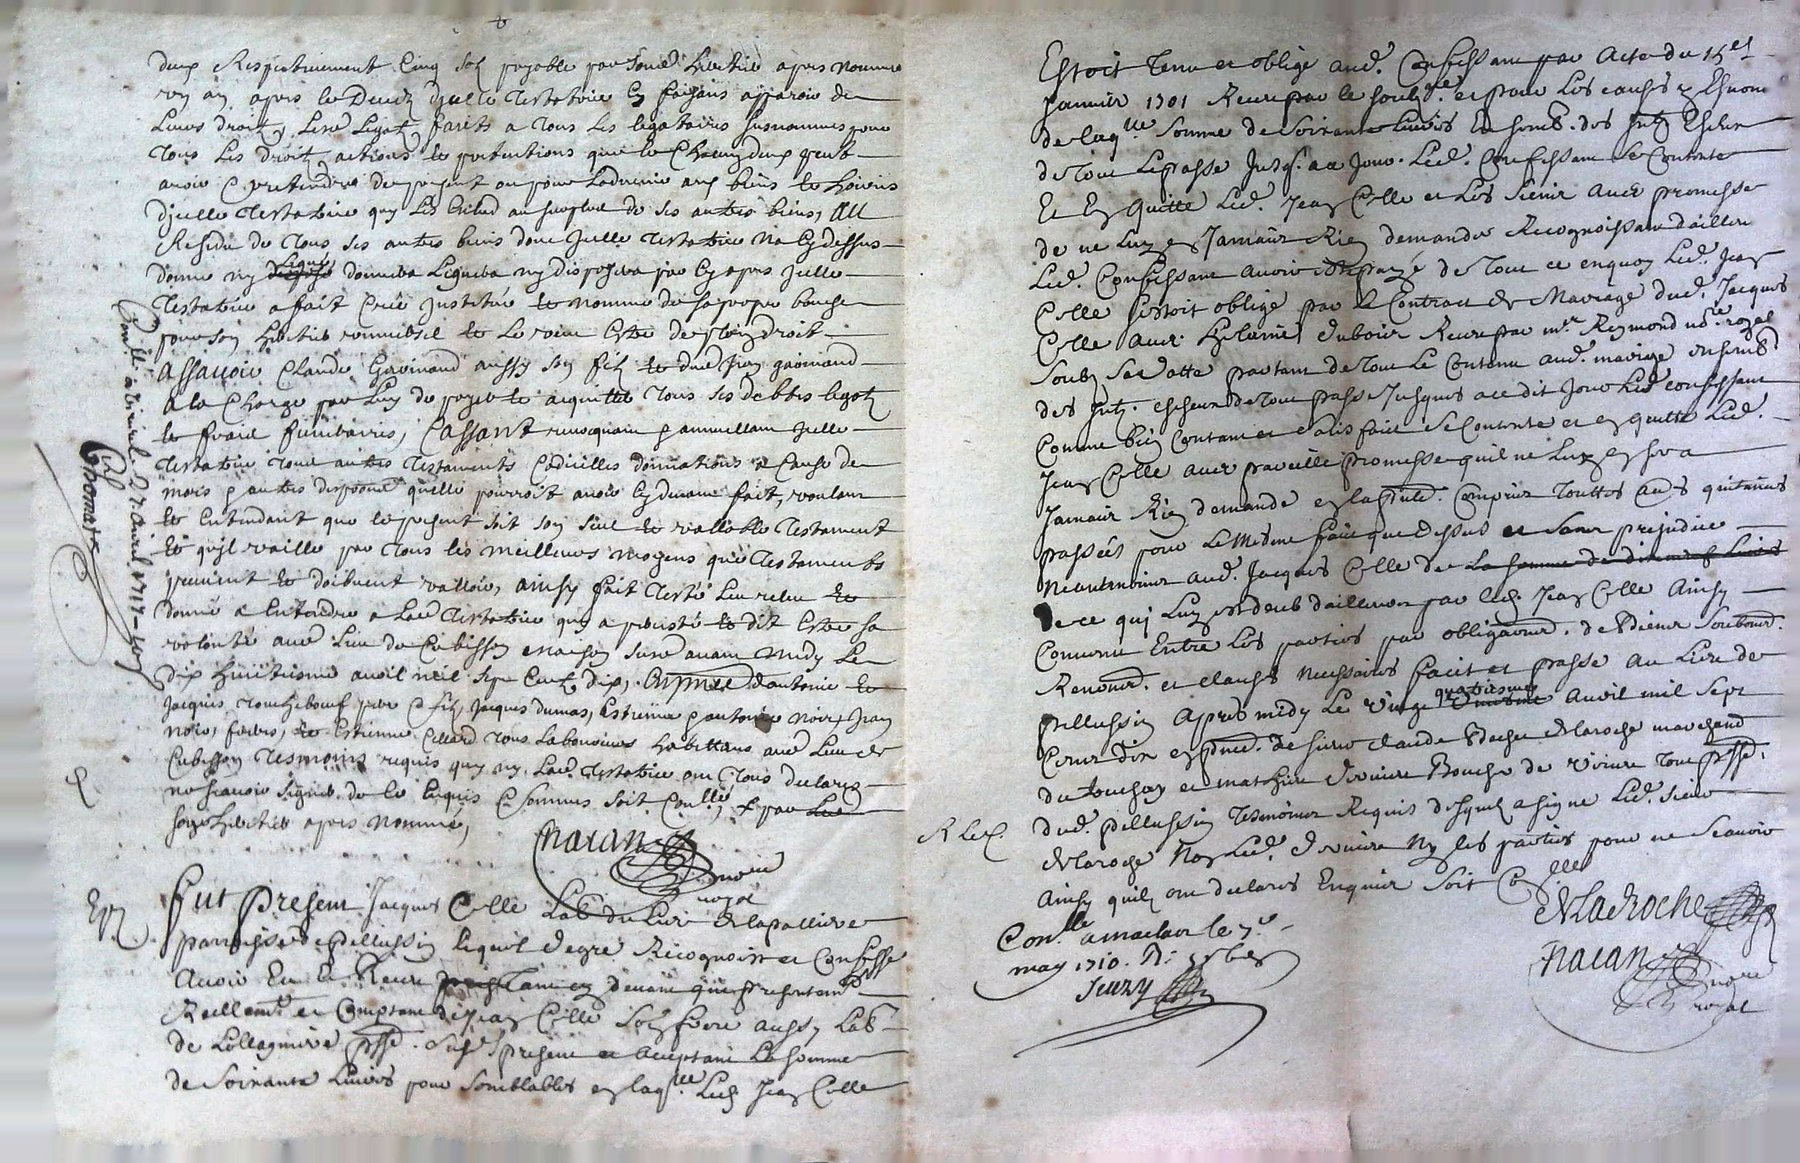 deux Respectivement Cinq solz payable par son heritier apres nomme
un an apres le Deceds d'jcelle Testatrice En faisant apparoir de
Leurs droits, Lesd. Legats faicts a tous Les legataires susnommes pour
tous Les droits actions et pretentions que le Chacun deux peut
avoir & pretendre de present ou pour Ladvenir aux biens et hoiries
d'jcelle Testatrice qui Les Exclud au surplus de ses autres biens, Au
Residu de tous ses autres biens dont jcelle testatrice na Cydessus
donne ny Legué donnera Leguera ny disposera par Cy apres jcelle
Testatrice a fait Creé jnstitué et nomme de sa propre bouche
pour son heritier universel et Le veut Estre de plain droit
Assavoir Claude Gavinand aussy son filz et dud. Jean gavinand
A la Charge par Luy de payer et acquitter tous ses debtes legatz
et fraix funeraires, Cassant revocquant & annullant jcelle
Testatrice tous autres Testaments Codicilles donnations a Cause de
mort & autres dispositions quelle pourroit avoir Cydevant fait, voulant
et Entendant que le present soit son seul et vallable Testament
et qu'jl vaille par tous les meilleurs moyens que Testaments
peuvent et doibvent valloir, ainsy fait Testé Leu releu et
donné a Entendre a Lad. Testatrice qui a persisté et dit Estre sa
volonté aud. Lieu de Cubisson maison susd. avant midy Le
dix huictiesme avril mil sept Cents dix, En presence d'antoine et
Jacques touchebeuf pere & filz, Jacques dumas, Estienne & antoine noir, Jean
noir, freres, et Estienne Cellard tous Laboureurs habittans aud. Lieu de
Cubisson Tesmoins requis qui ny Lad. testatrice ont tous declaré
ne scavoir signer de ce Enquis & sommes soit Con.llé, & par Led.
sond. heritier apres nommé,
Nacan
no.re
royal
Con.llé a Viriel 27 avril 1717
Thomas
Exp.
Fut present Jacques Celle Lab.r du Lieu de lapalliere
parroisse de pellussin lequel de gré Recognoist et Confesse
Avoir Eu et Receu presentement
Reellemt. et Comptant de Jean Celle Son frere aussy Lab.r
de Lollagniere psse. Susd. present et acceptant La somme
de Soixante Livres pour semblables en laq.lle Led. Jean Celle
Estoit Tenu et obligé aud. Confessant par acte du 15e
Janvier 1701 Receu par le soubz.né et pour Les causes y Esnoncées
de laq.lle somme de soixante Livres Ensemb. des jntz. Escheus
de tout Le passé Jusq. a ce Jour. Led. Confessant se Contente
Et En quitte Led. Jean Celle et Les siens avec promesse
de ne Luy en Jamais Rien demander Recognoissant dailleurs
Led. Confessant avoir esté payé de tout ce enquoy Led. Jean
Celle sestoit obligé par le Contract de Mariage dud. Jacques
Celle avec Helaine dubois Receu par m.r Reymond no.re royal
Soubz sa datte partant de tout Le Contenu aud. mariage ensemb.
des jntz. escheus de tout passé Jusques a ce dit Jour Led. confessant
Comme bien Contant et satisfait se Contente et en quitte Led.
Jean Celle avec pareille promesse quil ne Luy en sera
Jamais Rien demandé Comprins touttes autres quittances
passées pour Le mesme fait que dessus et sans prejudice
Neantmoins aud. Jacques Celle de la somme de dixneuf Livres
de ce qui Luy est deub dailleurs par led. Jean Celle Ainsy
Convenu Entre Les parties par obligaōns. de Biens Soubond.
Renond. et clauses necessaires fait et passé au Lieu de
pellussin Apres midy Le vingt quatriesme avril mil sept
Cents dix en presence de sieur Claude Bacher delaroche marchand
du touchon et mathieu deviniere Boucher de virieu tous psse.
dud. pellussin Tesmoins Requis desquels a signé Led. sieur
delaroche Non Led. deviniere Ny les parties pour ne Scavoir
Ainsy quilz ont declaré Enquis Soit Con.llé
R Lec.
DeLaRoche
Nacan
no.re
royal
Con.lle a maclas le 7.e
may 1710. R.
Seuzy